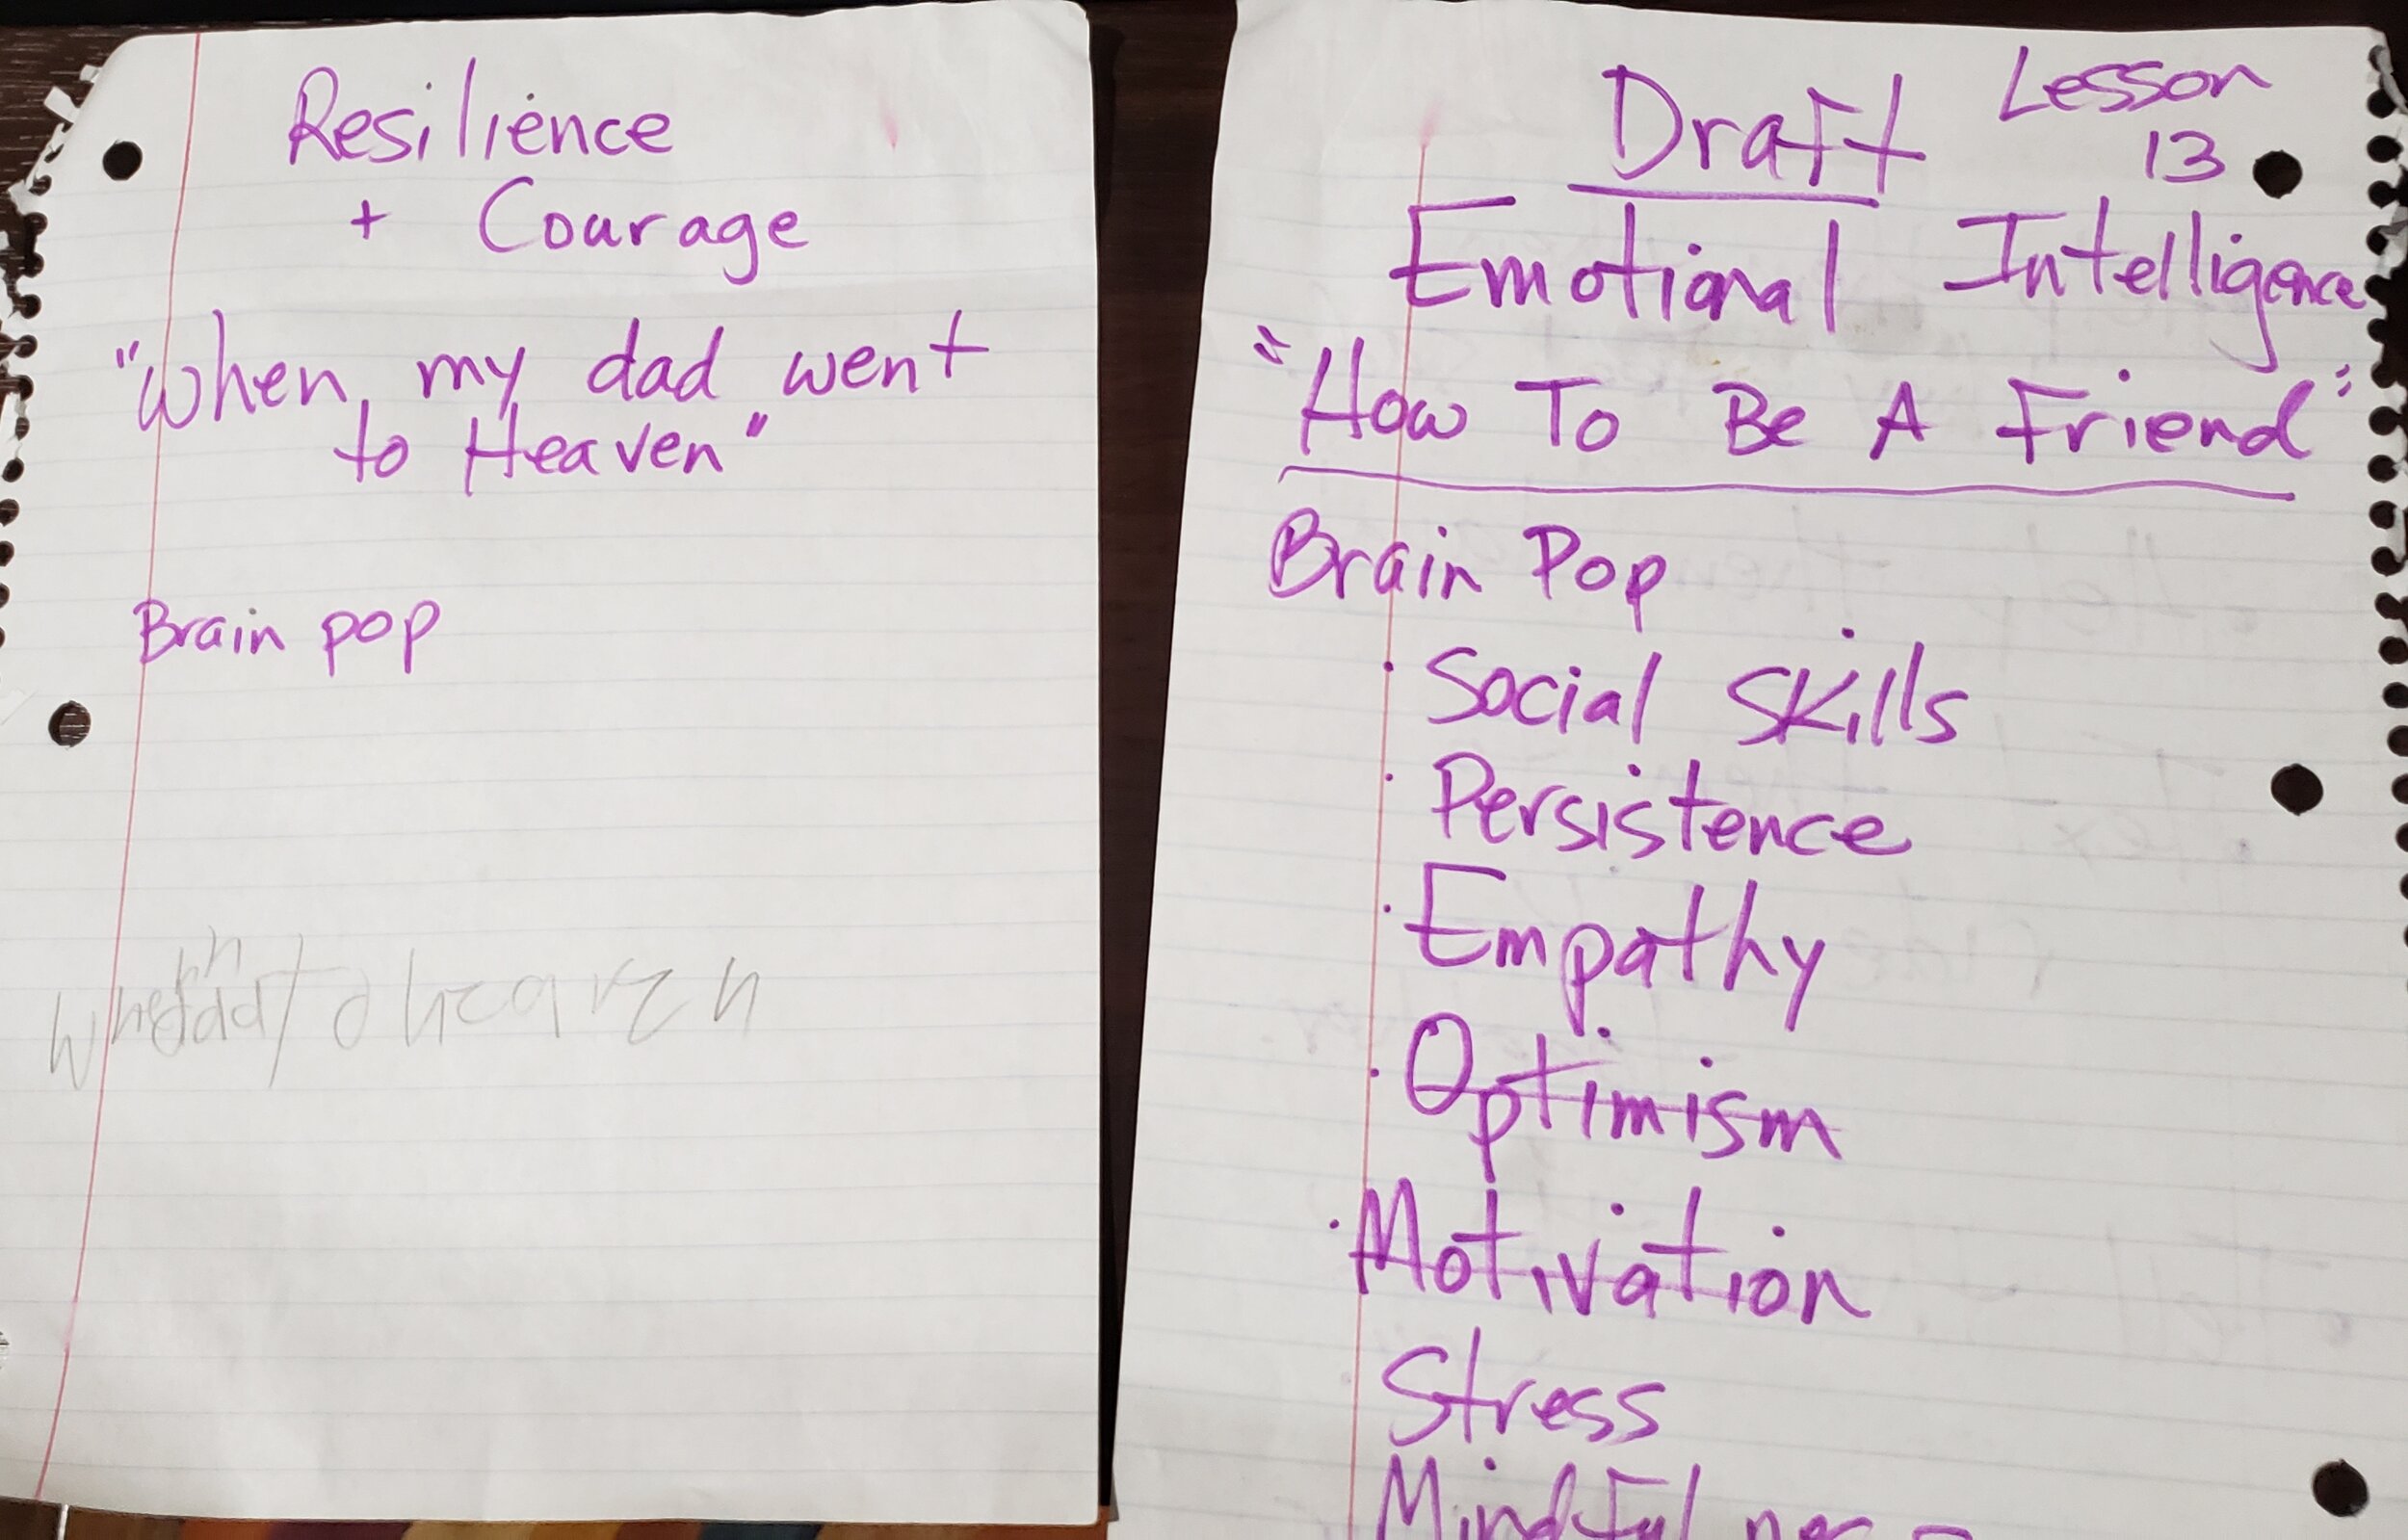 Resilience
+ Courage
"When my dad went
to Heaven"
Brain pop
heaven
Draft
Lesson
13
Emotional Intelligence
"How To Be A Friend"
Brain Pop
· Social Skills
· Persistence
· Empathy
· Optimism
· Motivation
Stress